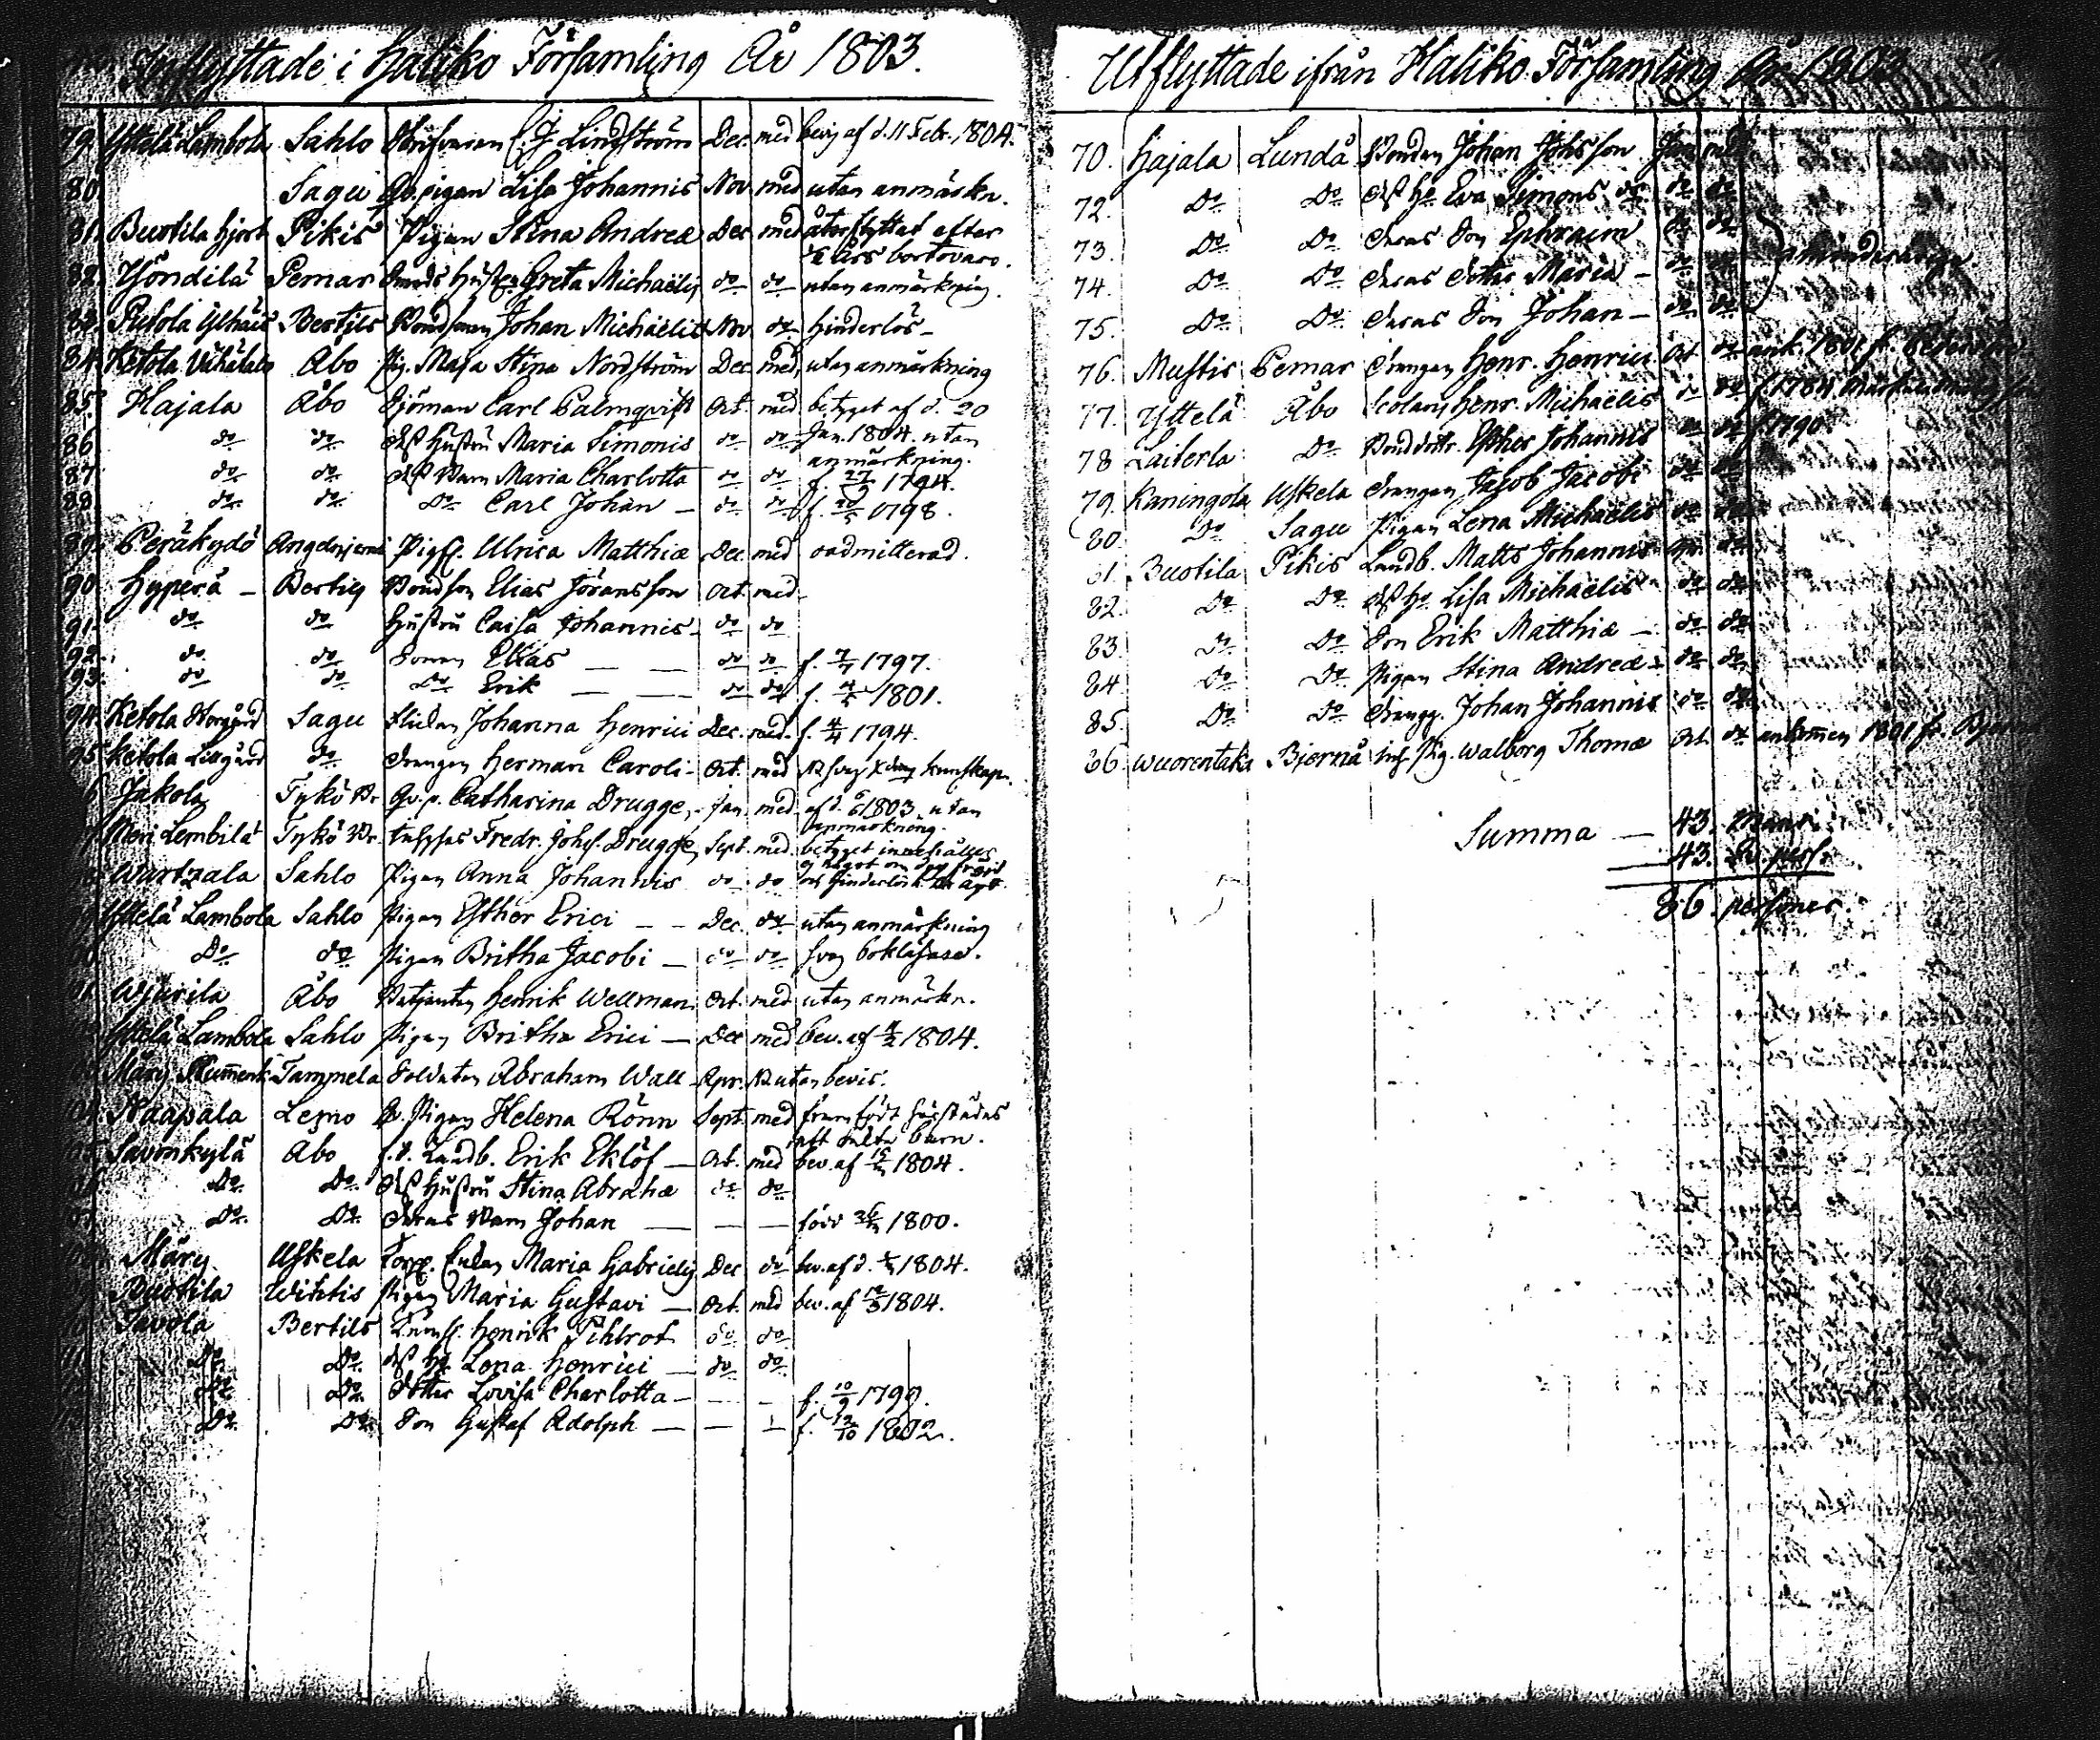 Inflyttade i Haliko Församling År 1803.
79. Yttelä Lambola Sahlo Lindström Dec. med bevis af d. 11 Febr. 1804.
80 Sagu Qv. pigan Lisa Johannis Nov med utan anmärkn.
81. Buotila Hjort Pikis Pigan Stina Andreæ Dec med återflyttat efter
½ års bortovaro.
82. Yöndilä Pemar Hustr. Greta Michaëlis do do utan anmärkning.
83. Putola Bertils Bondsonen Johan Michaëlis Nov do hinderlös
84. Ketola Vähätalo Åbo Pig. Maja Stina Nordström Dec. med utan anmärkning
85. Hajala Åbo Sjöman Carl Palmqvist Oct. med betyget af d. 20
86 do do Dess Hustru Maria Simonis do do Jan. 1804. utan
anmärkning.
87 do do Dess Barn Maria Charlotta do do f. 27/9 1794.
88 do do Do Carl Johan – do do f. 20/5 1798.
89. Peräkydö Angelniemi Pig. Ulrica Matthiæ Dec. med oadmitterad.
90 Hyperä – Bertils Bondson Elias Jöransson Oct. med
91. do do Hustru Caisa Johannis do do
92. do do Sonen Elias — — do do f. 7/7 1797.
93. do do Do Erik — — do do f. 4/5 1801.
94. Ketola Storgård Sagu Flickan Johanna Henrici Dec. med. f. 4/4 1794.
95 Ketola Lillgård do Drengen Herman Caroli Oct. med svag Xdoms kunskap.
6 Jakola Tykö Br. Qv. p. Catharina Drugge, Jan. med af d. 1803 utan
anmärkning.
Meri Lembilä Tykö Br. Fredr. Johs. Drugge, Sept. med betyget innehåller
ej något om dess frejd
Wartzala Sahlo Pigan Anna Johannis do do och hinderlöshet
Yttelä Lambola Sahlo Pigan Esther Erici – – Dec. do utan anmärkning
Do do Pigan Britha Jacobi – do do svag bokläsare.
1. Wiurila Åbo Betjenten Henrik Wellman Oct. med utan anmärkn.
Yttelä Lambola Sahlo Pigan Britha Erici – Dec med bev. af 4/2 1804.
Märy Tammela Soldaten Abraham Wall Apr. utan bevis.
104 Naapala Lemo Q. Pigan Helena Rönn Sept med framfödt härstädes
ett oäkta barn.
105 Savonkylä Åbo f. d. Landb. Erik Eklöf — Oct. med bev. af 1804.
Do Do Dess Hustru Stina Abrahæ do do
07 Do Do Deras Barn Johan — — — född 1800.
Märy Uskela Torp. Enkan Maria Gabriels Dec do bev. af d. 1804.
Buotila Wihtis Pigan Maria Gustavi — Oct. med bev. af 1804.
Tavola Bertils Henrik Pihlrot do do
Do Do Dess Hu Lena Henrici — do do
Do Do Dotter Lovisa Charlotta – – – f. 10/9 1799.
Do Do Son Gustaf Adolph — — – f. 12/10 1802.
Utflyttade ifrån Haliko Församling År 1803
70. Hajala Lundå Bonden Johan Johsson Jan med
72. Do Do Dess Hu Eva Simons dr do do
73. Do Do Deras Son Ephraim do do
74. Do Do Deras Dotter Maria – do do minderåriga.
75. Do Do Deras Son Johan – do do
76. Mustis Pemar Drengen Henr. Henrici Oct do
77. Yttelä Åbo Scolaren Henr. Michaëlis do do f. 1784
78 Laiterla Do Bonddottr. Esther Johannis do do f. 1790
79. Kaningola Uskela Drengen Jacob Jacobi do do
80. Do Sagu Pigan Lena Michaëlis do do
81. Buotila Pikis Landb. Matts Johannis do
82. Do Do Dess Hu Lisa Michaëlis do do
83. Do Do Son Erik Matthiæ — do do
84 Do Do Pigan Stina Andreæ do do
85. Do Do Dreng. Johan Johannis do do
86. Wuorentaka Bjernå Inh. Pig. Walborg Thomæ Oct. do ankommen 1801 fr.
Summa — 43. Mank.
43. Qv. pers.
86. personer.